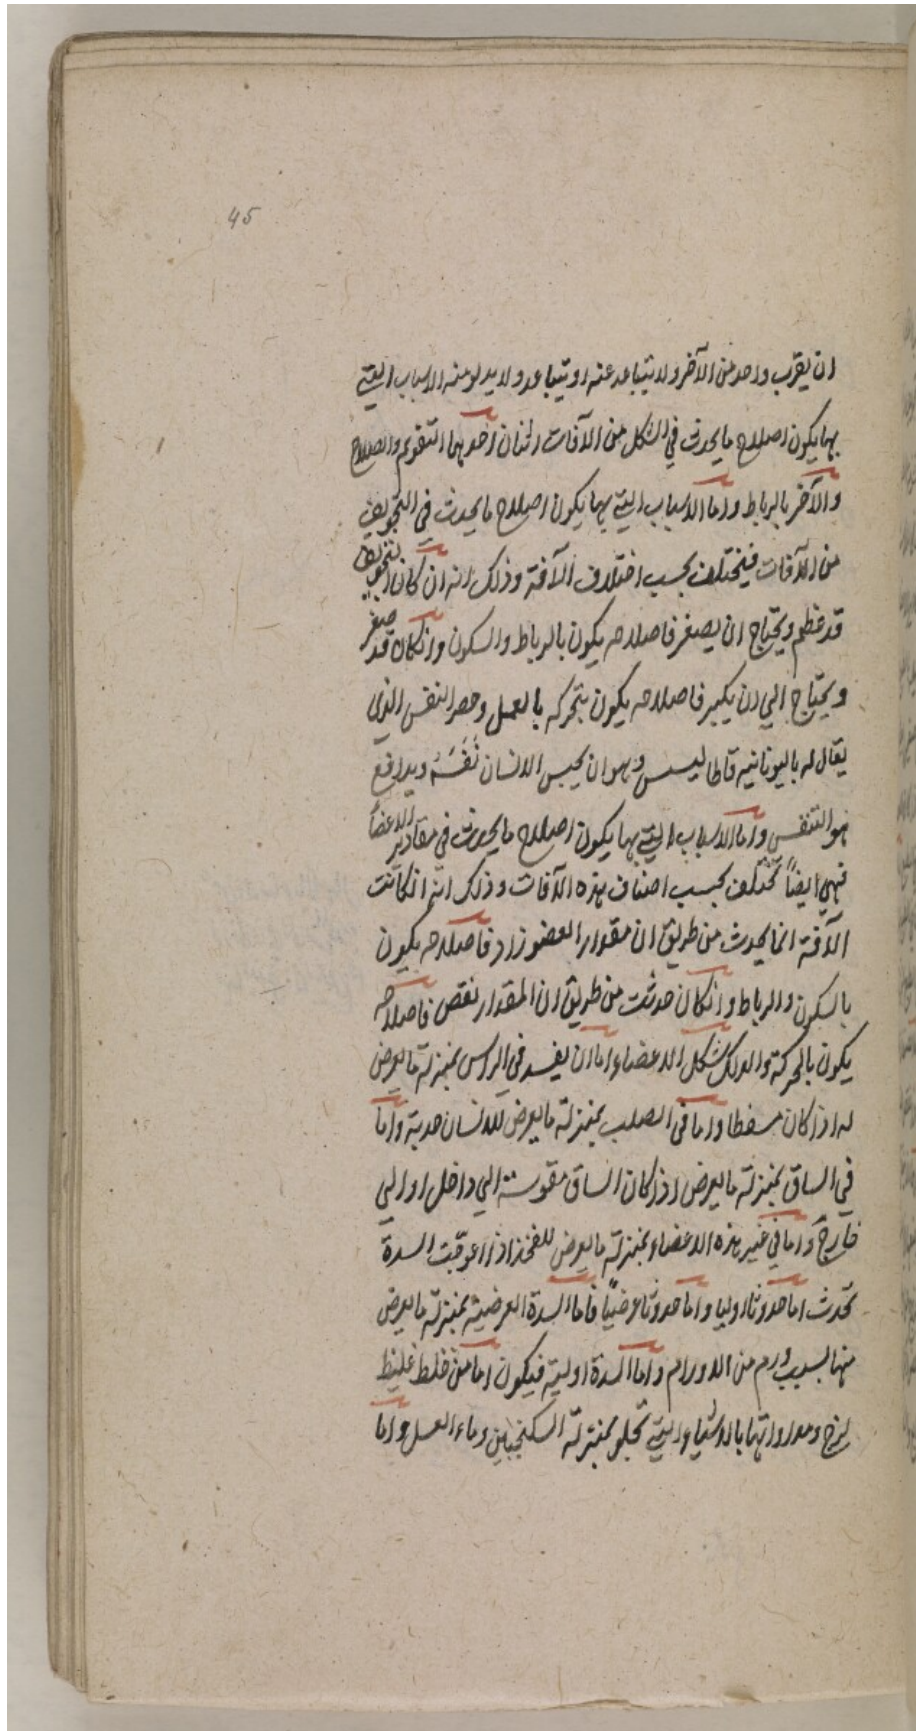 45
ان يقرب واحد من الآخر ولا يتباعد عنه او يتباعد ولا يدلو منه الاسباب التي
بها يكون اصلاح ما يحدث في الشكل من الآفات اثنان احدهما التقويم والاصلاح
والآخر بالرباط واما الاسباب التي بها يكون اصلاح ما يحدث في التجويف
من الآفات فيختلف بحسب اختلاف الآفة وذلك انه ان كان التجويف
قد عظم ويحتاج ان يصغر فاصلاحه يكون بالرباط والسكون وان كان قد صغر
ويحتاج الي ان يكبر فاصلاحه يكون بتحركه بالعمل وحصر النفس الذي
يقال له باليونانيه قاطاليسس وهو ان يحبس الانسان نَفَسَهُ ويدافع
هو التنفس واما الاسباب التي بها يكون اصلاح ما يحدث في مقادير الاعضاء
فهي ايضاً تختلف بحسب اصناف هذه الآفات وذلك انه ان كانت
الآفة انما يحدث من طريق ان مقدار العضو زاد فاصلاحه يكون
بالسكون والرباط وان كان حدثت من طريق ان المقدار نقص فاصلاحه
يكون بالحركة والدلك شكل الاعضاء اما ان يفسد في الراس بمنزلة ما يعرض
له اذا كان مسفطا واما في الصلب بمنزلة ما يعرض للانسان حدبة واما
في الساق بمنزلة ما يعرض اذا كان الساق مقوسة الي داخل او الي
خارج واما في غير هذه الاعضاء بمنزلة ما يعرض للفخذ اذا اعوجت السدة
تحدث اما حدوثا اوليا واما حدوثا عرضيًا فاما السدة العرضية بمنزلة ما يعرض
منها بسبب ورم من الاورام واما السدة اولية فيكون اما من خلط غليظ
لزج ومداواتها بالاشياء التي تجلو بمنزلة السكنجبين وماء العسل واما